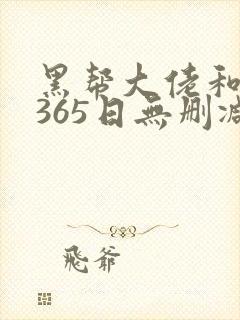 黑帮大佬和
365日無删
飛爺